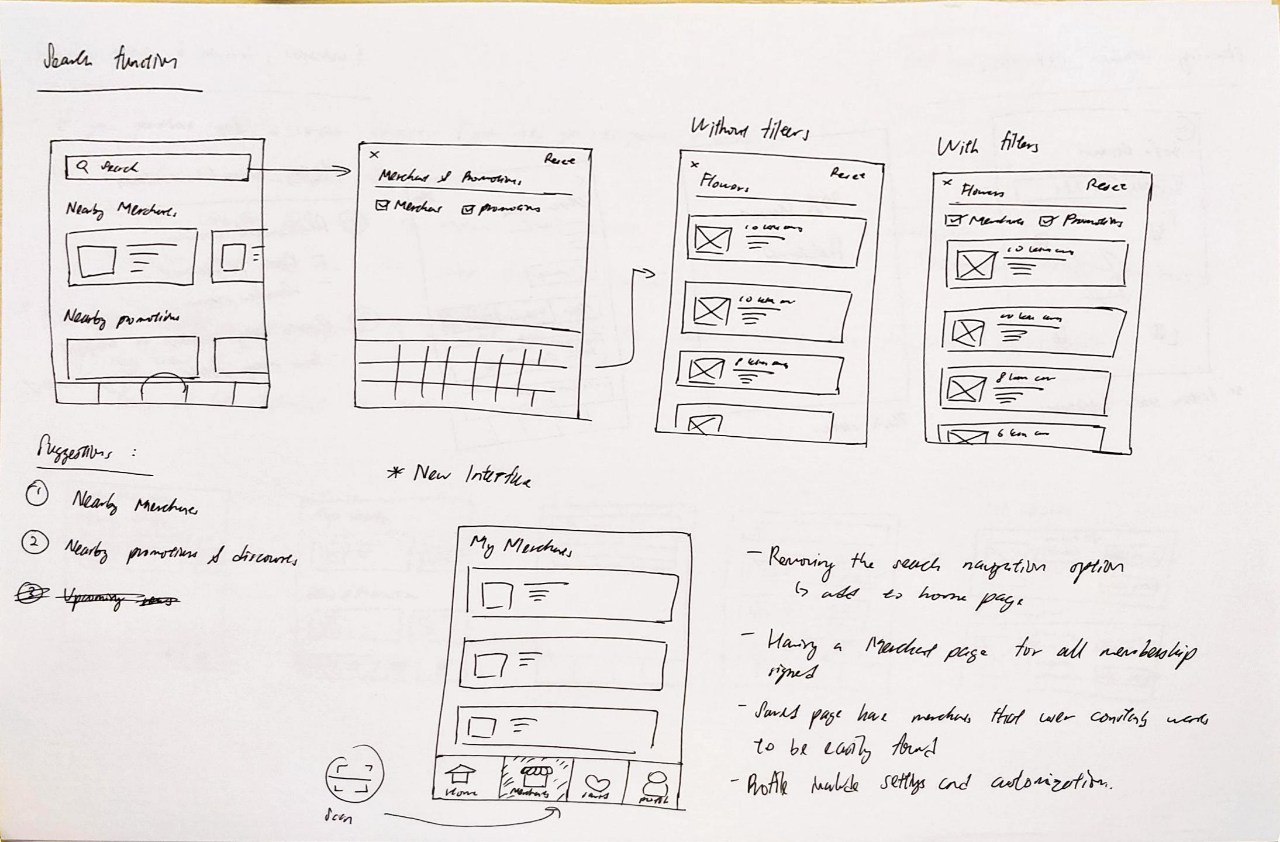 Search function
Search
Nearby Merchants
Nearby promotions
× Reset
Merchant & Promotions
Merchant promotions
Without filters
× Reset
Flowers
10 km away
10 km away
8 km away
With filters
× Reset
Flowers
Merchants Promotions
10 km away
10 km away
8 km away
6 km away
Suggestions :
1 Nearby Merchants
2 Nearby promotions & discounts
3 Upcoming
* New Interface
My Merchants
Home Merchants Saved profile
Scan
- Removing the search navigation option
↳ add to home page
- Having a Merchant page for all membership
signed
- Saved page have merchants that user constantly wants
to be easily found
- Profile include settings and customization.